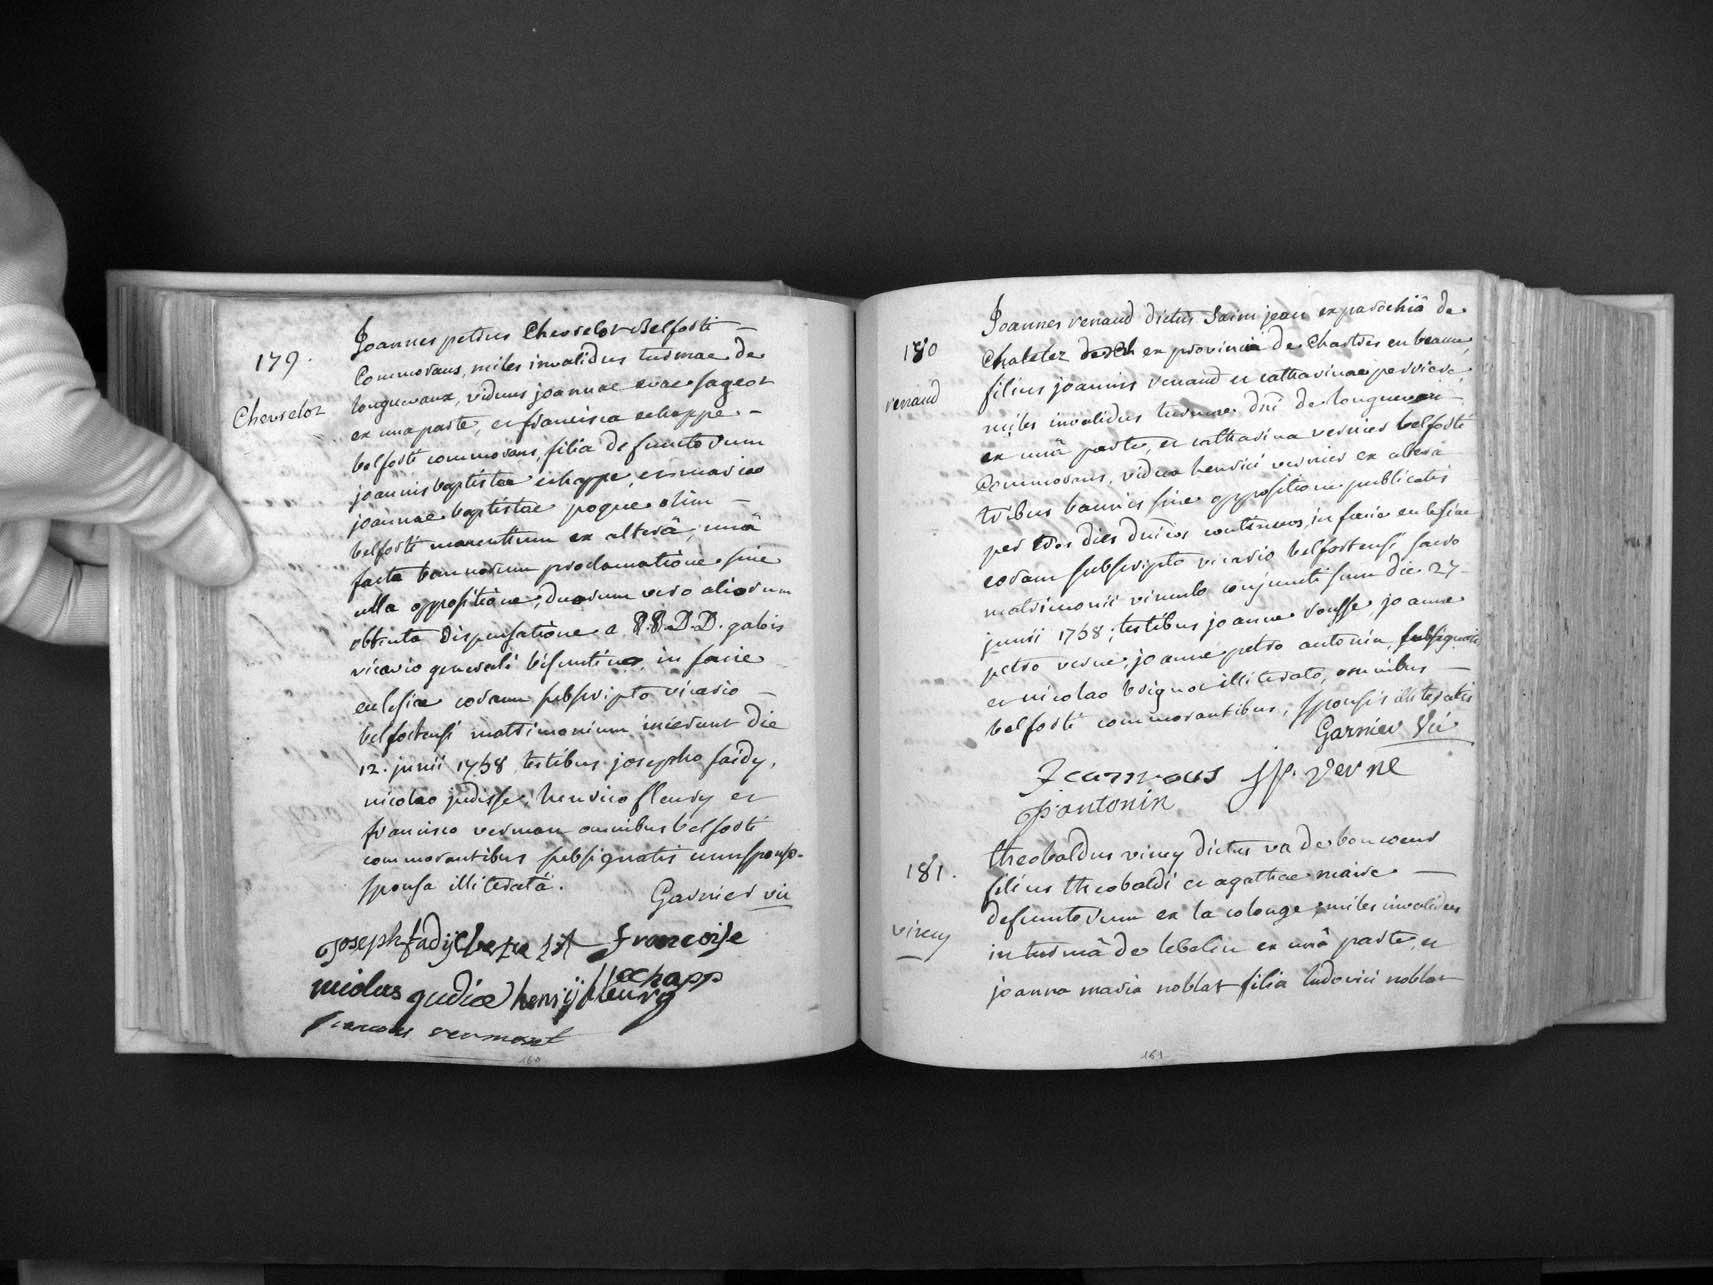 179.
Chevrelot
Joannes petrus Chevrelot Belforti
Commorans, miles invalidus turmae de
longuevaux, viduus joannae evae sageot
ex una parte, et francisca echappe
belforti commorans, filia defunctorum
joannis baptistae echappe, et mariae
joannae baptistae poque olim
belforti manentium ex alterâ, unâ
facta bannorum proclamatione sine
ulla oppositione, duorum vero aliorum
obtenta dispensatione a R.R.D.D. galois
vicario generali bisuntino, in facie
ecclesiae coram subscripto vicario
belfortensi matrimonium inierunt die
12. junii 1758, testibus josepho faidy,
nicolao judisse, henrico fleury et
francisco verman omnibus belforti
commorantibus subsignatis cum sponso.
sponsa illiterata.
Garnier vic
Joseph fady francoise
echapp
nicolas judice henrij fleury
francois vermont
160
180
renaud
Joannes renaud dictus Saint jean ex parochiâ de
Chatelez ex provincia de Chartres en beauce,
filius joannis renaud et catharinae perriere,
miles invalidus turmae dni de longuevau
ex unâ parte, et catharina vernier belforti
Commorans, vidua henrici vernier ex alterâ
tribus bannis sine oppositione publicatis
per tres dies dnicos continuos, in facie ecclesiae
coram subscripto vicario belfortensi sacro
matrimonii vinculo conjuncti sunt die 27
junii 1758, testibus joanne rousse joanne
petro verne, joanne petro antonin, subsignatis
et nicolao brignoc illiterato, omnibus
belforti commorantibus, sponsis illiteratis
Garnier Vic
Jean rous jp. verne
jp antonin
181.
virey
theobaldus virey dictus va de bon coeur
filius theobaldi et agathae maire
defunctorum ex la colonge, miles invalidus
in turmâ de lebelin ex unâ parte, et
joanna maria noblat filia ludovici noblat
161